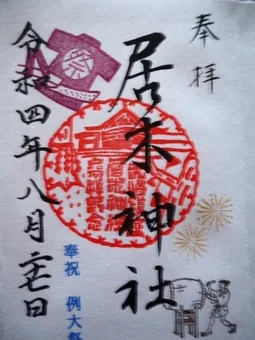 奉拝
居木神社
令和四年八月二七日
祭
奉祝 例大祭